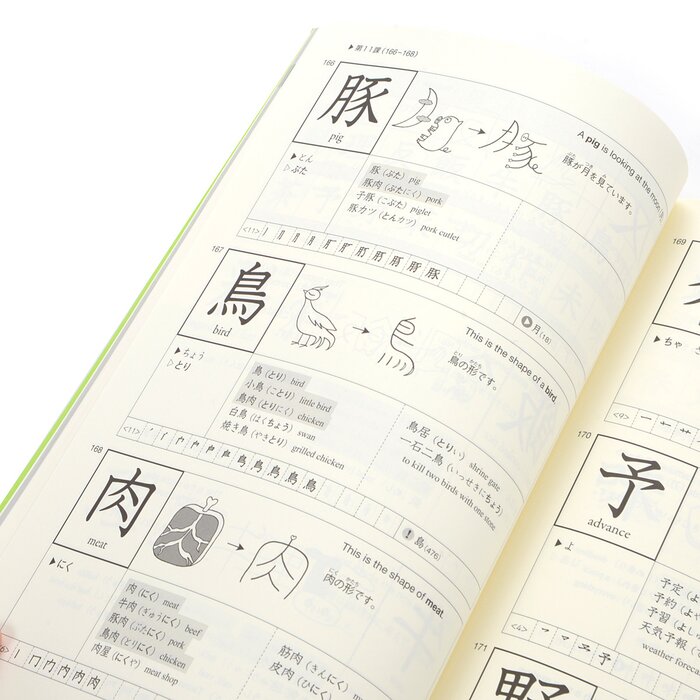 ▶第11課(166-168)
166
豚
pig
A pig is looking at the moon
豚が月を見ています。
ぶた つき み
▶とん
▷ぶた
豚(ぶた) pig
豚肉(ぶたにく) pork
子豚(こぶた) piglet
豚カツ(とんカツ) pork cutlet
<11>
月(18)
167
鳥
bird
This is the shape of a bird.
鳥の形です。
とり かたち
▶ちょう
▷とり
鳥(とり) bird
小鳥(ことり) little bird
鳥肉(とりにく) chicken
白鳥(はくちょう) swan
焼き鳥(やきとり) grilled chicken
鳥居(とりい) shrine gate
一石二鳥(いっせきにちょう)
to kill two birds with one stone
<11>
島(476)
168
肉
meat
This is the shape of meat.
肉の形です。
にく かたち
▶にく
肉(にく) meat
牛肉(ぎゅうにく) beef
豚肉(ぶたにく) pork
鳥肉(とりにく) chicken
肉屋(にくや) meat shop
筋肉(きんにく)
皮肉(ひにく)
169
▶ちゃ
<9>
170
予
advance
▶よ
予定(よ
予約(よ
予習(よ
天気予報(
weather foreca
<4>
171
野